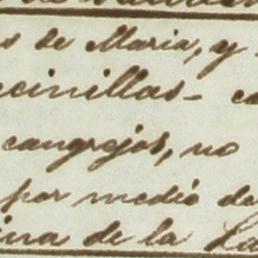 s de Maria, y
cinillas - ca
cangrejos, no
por medio de
ina de la La